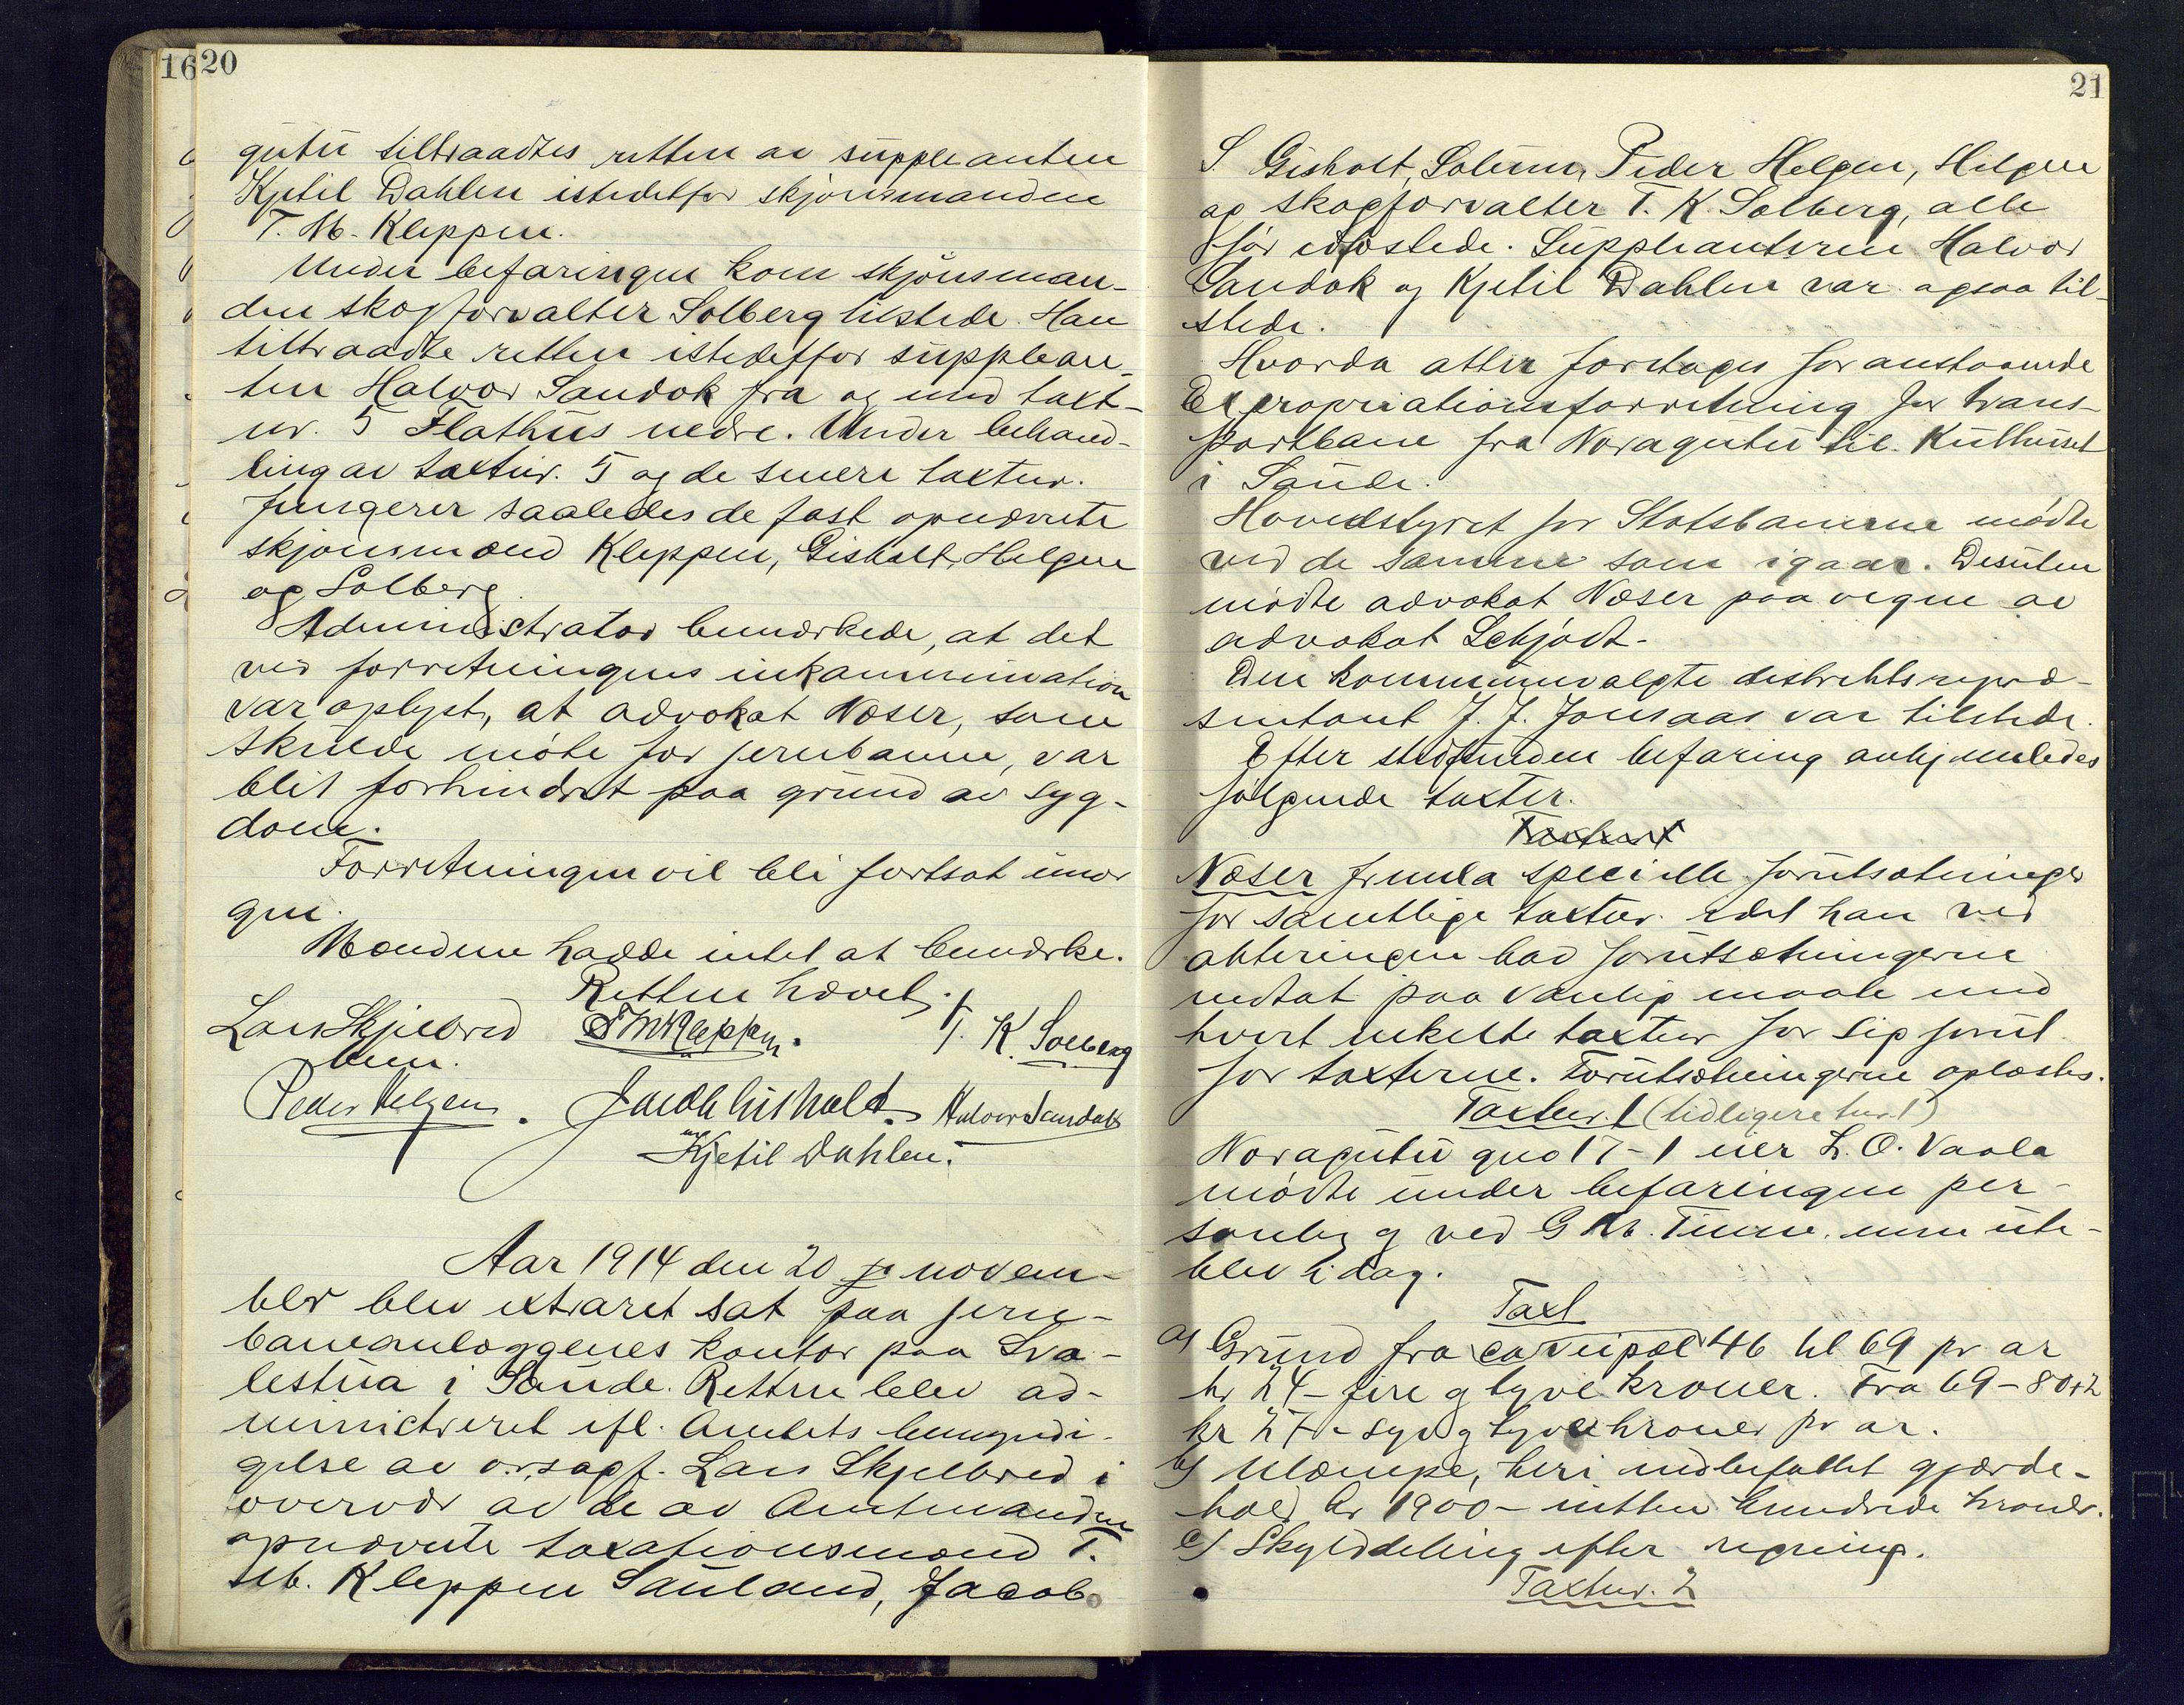 16 20
gutu tiltraadtes retten av suppleanten
Kjetil Dahlen istedetfor skjønsmanden
T. M. Kleppen.
Under befaringen kom skjønsman-
den skogforvalter Solberg tilstede. Han
tiltraadte retten istedetfor supplean-
ten Halvor Sandok fra og med taxt-
nr. 5 Flathus nedre. Under behand-
ling av taxtnr. 5 og de senere taxtnr.
fungerer saaledes de fast opnævnte
skjønsmænd Kleppen, Gisholt, Helgen
og Solberg.
Administrator bemærkede, at det
ved forretningens inkamination
var oplyst, at advokat Næser, som
skulde møte for jernbanen, var
blit forhindret paa grund av syg-
dom.
Forretningen vil bli fortsat imor
gen.
Mændene hadde intet at bemærke.
Retten hævet.
Lars Skjelbred T M Kleppen. T. K. Solberg
Peder Helgen. Jacob Gisholt. Halvor Sandok
Kjetil Dahlen.
Aar 1914 den 20 novem-
ber blev extraret sat paa jern-
baneanlæggenes kontor paa Sva-
lestua i Saude. Retten blev ad-
ministreret ifl. Amtets bemyndi-
gelse av o.r.sagf. Lars Skjelbred i
overvær av de av Amtmanden
opnævnte taxationsmænd T.
M. Kleppen Sauland, Jacob
21
S. Gisholt, Solum, Peder Helgen, Helgen
og skogforvalter T. K. Solberg, alle
før edfæstede. Suppleanterne Halvor
Sandok og Kjetil Dahlen var ogsaa til-
stede.
Hvorda atter foretages foranstaaende
Expropriationsforretning for trans-
portbane fra Noragutu til Kulhuset
i Saude.
Hovedstyret for Statsbanerne mødte
ved de samme som igaar. Desuten
mødte advokat Næser paa vegne av
advokat Schjødt.
Den kommunevalgte distriktsrepræ-
sentant J. J. Jonsaas var tilstede.
Efter stedfunden befaring avhjemledes
følgende taxter.
Næser fremla specielle forutsætninger
for samtlige taxtnr. idet han ved
akteringen bad forutsætningerne
indtat paa vanlig maate med
hvert enkelte taxtnr for sig forut
for taxterne. Forutsætningerne oplæstes.
Taxtnr. 1 (tidligere tnr. 1)
Noragutu gno 17-1 eier H. O. Vaala
mødte under befaringen per-
sonlig og ved G M. Tinne. men ute-
blev idag.
Taxt
a) Grund fra pæl 46 til 69 pr ar
kr 24 - fire og tyve kroner. Fra 69 - 80+2
kr 27 - syv og tyve kroner pr ar.
b) Ulæmpe, heri indbefattet gjærde-
hold kr 1900 - nitten hundrede kroner.
c) Skylddeling efter regning.
Taxtnr. 2